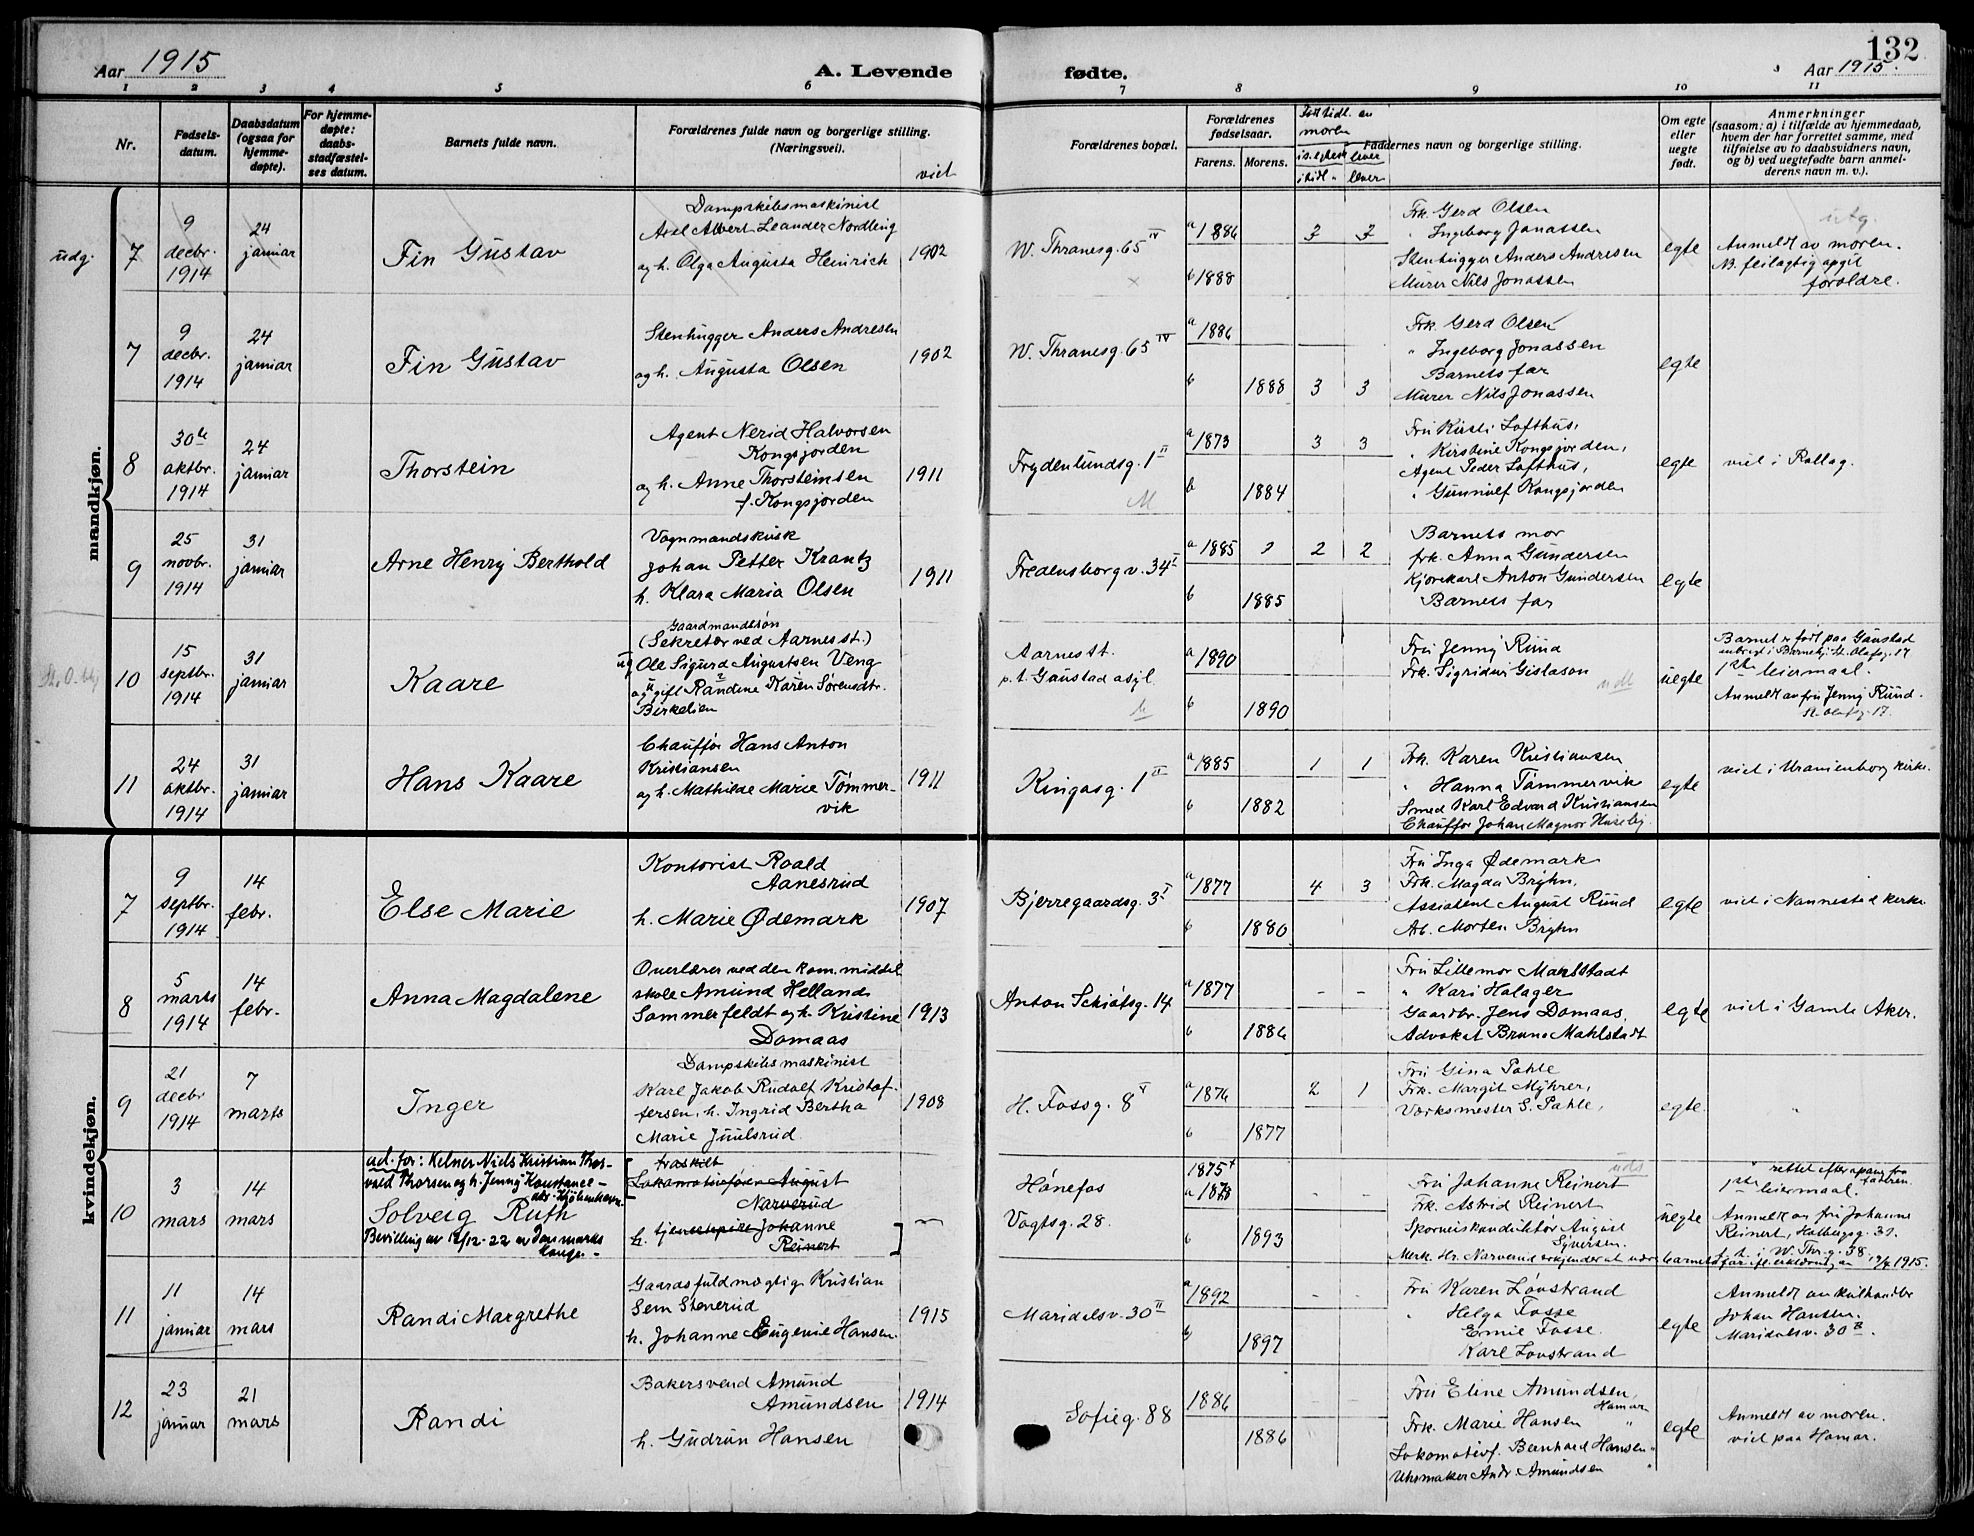 Aar 1915
A. Levende
fødte.
132
Aar 1915.
1 2 3 4 5 6 7 8 9 10 11
Nr.
Fødsels-
datum.
Daabsdatum
(ogsaa for
hjemme-
døpte).
For hjemme-
døpte:
daabs-
stadfæstel-
ses datum.
Barnets fulde navn.
Forældrenes fulde navn og borgerlige stilling.
(Næringsvei).
viet
Forældrenes bopæl.
Forældrenes
fødselsaar.
Farens. Morens.
moren
Faddernes navn og borgerlige stilling.
Om egte
eller
uegte
født.
Anmerkninger
(saasom: a) i tilfælde av hjemmedaab,
hvem der har forrettet samme, med
tilføielse av to daabsvidners navn,
og b) ved uegtefødte barn anmel-
derens navn m. v.).
mandkjøn.
udg.
7
9
decbr.
1914
24
januar
Fin Gustav
Dampskibsmaskinist
Axel Albert Leander Nordling
og h. Olga Augusta Heinrich
1902
W. Thranesg. 65 IV
a 1886
b 1888
3 3
Frk. Gerd Olsen
" Ingeborg Jonassen
Stenhugger Anders Andresen
Murer Nils Jonassen
egte
utg.
Anmeldt av moren.
N. feilagtig opgit
forældre.
7
9
decbr.
1914
24
januar
Fin Gustav
Stenhugger Anders Andresen
og h. Augusta Olsen
1902
W. Thranesg. 65 IV
a 1886
b 1888
3 3
Frk. Gerd Olsen
" Ingeborg Jonassen
Barnets far
Murer Nils Jonassen
egte
8
30te
oktbr.
1914
24
januar
Thorstein
Agent Nerid Halvorsen
Kongsjorden
og h. Anne Thorsteinsen
f. Kongsjorden
1911
Frydenlundsg. 1 II
M
a 1873
b 1884
3 3
Fru Kirsti Lofthus,
" Kirstine Kongsjorden,
Agent Peder Lofthus,
" Gunnulf Kongsjorden
egte
viet i Rollag.
9
25
novbr.
1914
31
januar
Arne Henry Berthold
Vognmandskusk
Johan Petter Krantz
h. Klara Maria Olsen
1911
Fredensborgv. 34 I
a 1885
b 1885
2 2
Barnets mor
frk. Anna Gundersen
Kjørekarl Anton Gundersen
Barnets far
egte
10
15
septbr.
1914
31
januar
Kaare
Gaardmandssøn
(Sekretær ved Aarnes st.)
ug Ole Sigurd Augustsen Veng
og ugift Randine Karen Sørensdtr.
Birkelien
Aarnes st.
p.t. Gaustad asyl
a 1890
b 1890
Fru Jenny Ruud
Frk. Sigridur Gislason
udt
uegte
Barnet er født paa Gaustad
anbragt i Barnehj. St. Olafsg. 17
1ste leiermaal.
Anmeldt av fru Jenny Ruud.
St. Olafsg. 17.
11
24
oktbr.
1914
31
januar
Hans Kaare
Chauffør Hans Anton
Kristiansen
og h. Mathilde Marie Tømmer-
vik
1911
Kingosg. 1 II
a 1885
b 1882
1 1
Frk. Karen Kristiansen
" Hanna Tømmervik
Smed Karl Edvard Kristiansen
Chauffør Johan Magnor Huseby.
egte
viet i Uranienborg kirke.
kvindekjøn.
7
9
septbr.
1914
14
febr.
Else Marie
Kontorist Roald
Aanesrud
h. Marie Ødemark
1907
Bjerregaardsg. 3 I
a 1877
b 1880
4 3
Fru Inga Ødemark
Frk. Magda Bryhn,
Assistent August Ruud
Ab. Morten Bryhn
egte
viet i Nannestad kirke
8
5
marts
1914
14
febr.
Anna Magdalene
Overlærer ved den kom. middel
skole Amund Hellands
Sommerfeldt og h. Kristine
Domaas
1913
Anton Schiøtsg. 14
a 1877
b 1886
- -
Fru Lillemor Mahlstadt
" Kari Halager
Gaardbr. Jens Domaas,
Advokat Bruno Mahlstadt
egte
viet i Gamle Aker.
9
21
decbr
1914
7
marts
Inger
Dampskibsmaskinist
Karl Jakob Rudolf Kristof-
fersen, h. Ingrid Bertha
Marie Juulsrud.
1908
H. Fossg. 8 V
a 1876
b 1877
2 1
Fru Gina Pahle
Frk. Margit Myhrer,
Værksmester S. Pahle,
egte
10
3
mars
14
mars
ad. for: Kelner Niels Kristian Thor-
vald Thorsen og h. Jenny Konstance -
adr. Kjøbenhavn.
Solveig Ruth
Bevilling av 12/12-22 av Danmarks
konge. -
fraskilt
Lokomotivfører August
Narverud
h. tjenestepike Johanne
Reinert
Hønefos
Vogtsg. 28.
1875
a 1878
b 1893
- -
uds
Fru Johanne Reinert
Frk. Astrid Reinert
Sporveiskonduktør August
Syversen.
Merk. Hr. Narverud erkjender at være barnets far ifl. erklæring av 17/4 1915.
uegte
rettet efter opgav fra
faderen.
1ste leiermaal.
Anmeldt av fru Johanne
Reinert, Holbergsg. 31.
f. h. i W. Thr. g. 38.
11
11
januar
14
mars
Randi Margrethe
Gaardsfuldmægtig Kristian
Sem Stenerud
h. Johanne Eugenie Hansen.
1915
Maridalsv. 30 II
a 1892
b 1897
- -
Fru Karen Løvstrand
" Helga Fosse
Emil Fosse.
Karl Løvstrand
egte
Anmeldt av kulhandler
Johan Hansen.
Maridalsv. 30 B.
12
23
januar
21
mars
Randi
Bakersvend Amund
Amundsen
h. Gudrun Hansen
1914
Sofieg. 88
1886
1886
Fru Eline Amundsen,
Hamar
Frk. Marie Hansen "
Lokomotivf. Bernhard Hansen "
Uhrmaker Andr. Amundsen "
egte
Anmeldt av moren.
viet paa Hamar.